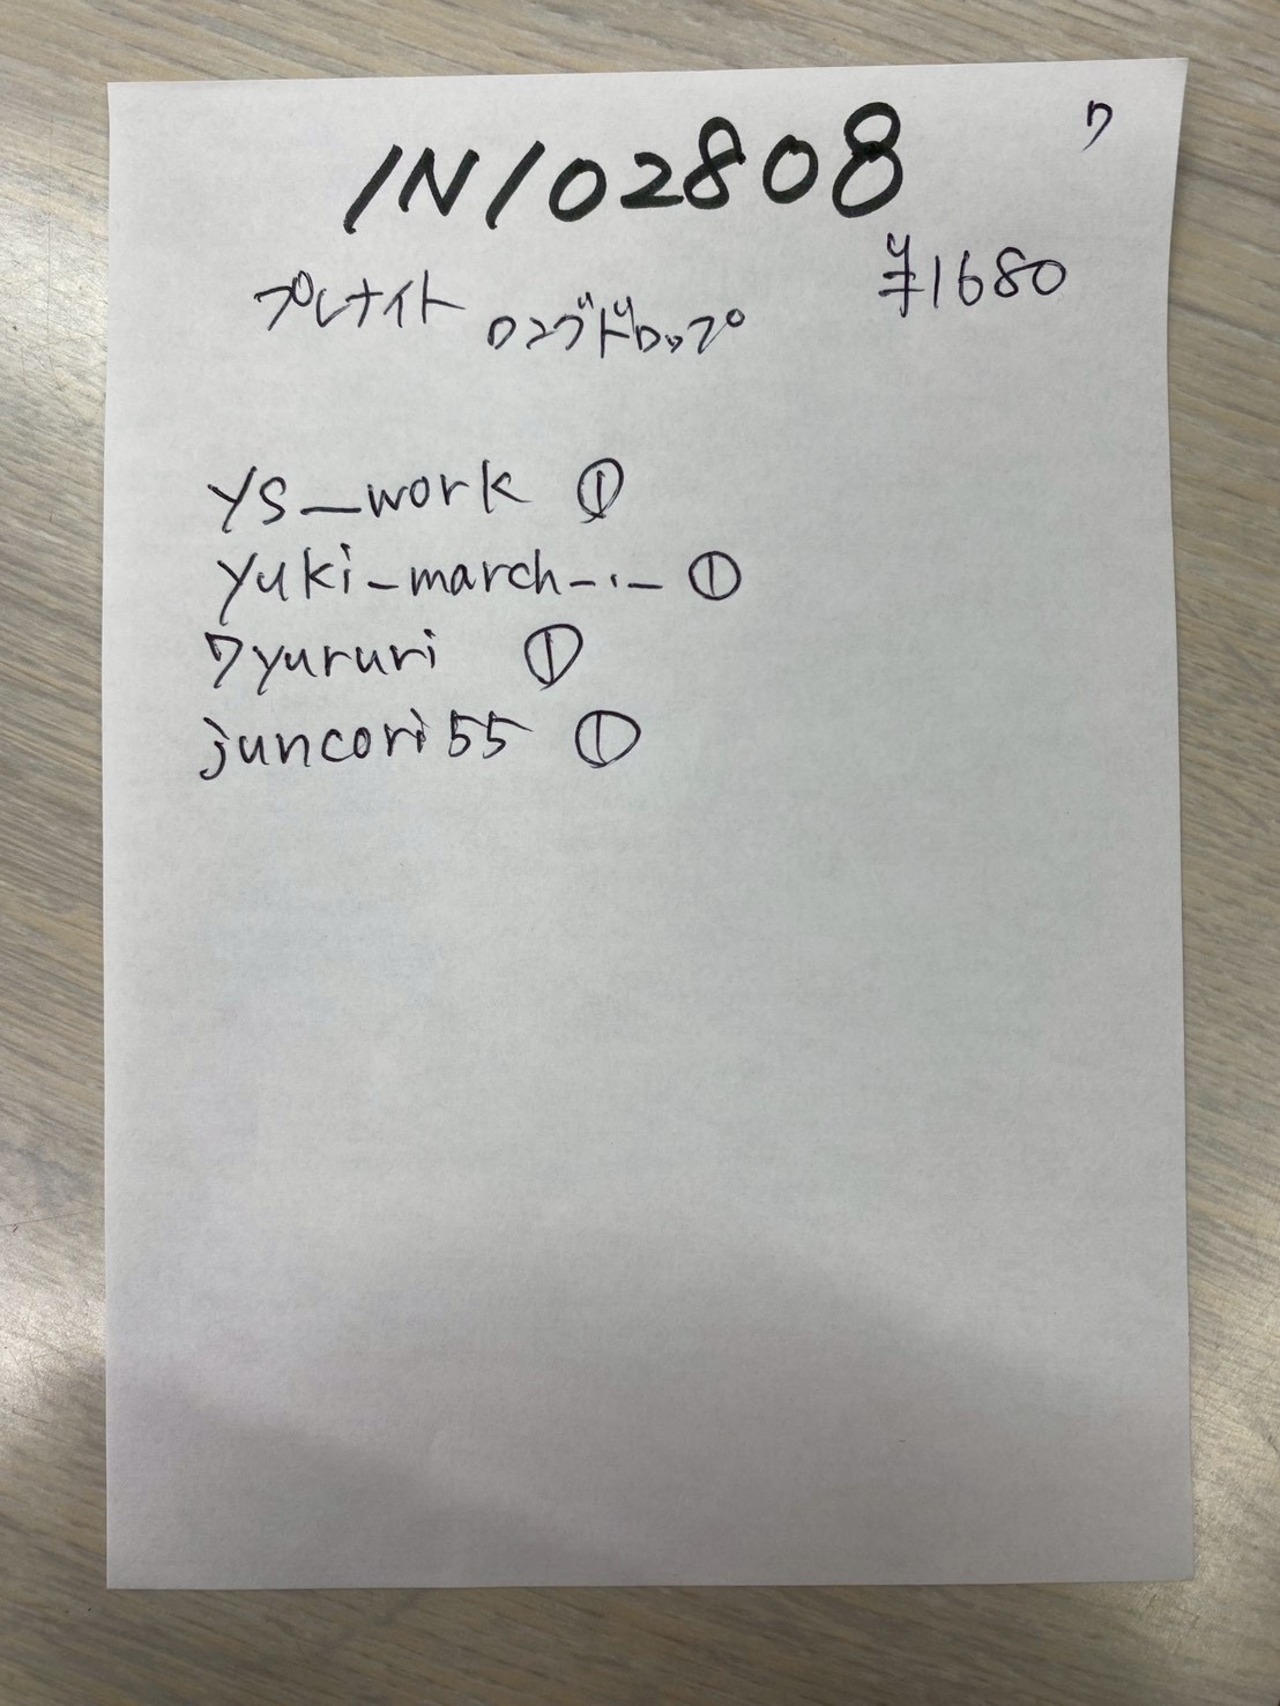 7
IN102808
¥1680
プレナイト ロングドロップ
ys_work ①
yuki_march_._ ①
7yururi ①
juncori55 ①